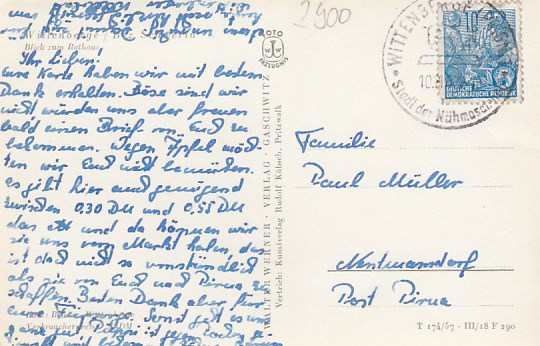 2900
Wittenberge / Bez. Schwerin
Blick zum Rathaus
Ihr Lieben!
Eure Karte haben wir mit bestem
Dank erhalten. Böse sind wir
nicht würden uns aber freuen
bald einen Brief von Euch zu
bekommen. Wegen Äpfel möch
ten wir Euch nicht bemühen.
es gibt hier auch genügend
zwischen 0,30 DM und 0,55 DM
das und da können wir
sie uns vom Markt holen, das
ist doch nicht so umständlich
als sie von Euch und Pirna zu
schaffen. Besten Dank aber für
Eure Sonst geht es uns
ganz gut
FOTO
W W
ERZEUGNIS
WALTER WERNER - VERLAG - GASCHWITZ
Vertrieb: Kunstverlag Rudolf Kölsch, Pritzwalk
WITTENBERGE
Stadt der Nähmaschinen
DEUTSCHE
DEMOKRATISCHE REPUBLIK
5
Familie
Paul Müller
Nentmannsdorf
Post Pirna
T 174/57 - III/18 F 290